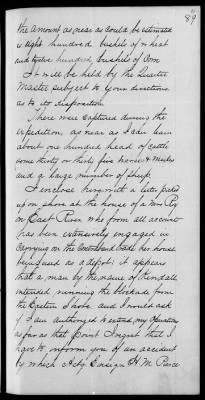 89
the amount as near as could be estimated
is eight hundred bushels of wheat
and twelve hundred bushels of Corn
It will be held by the Quarter
Master subject to your directions
as to its disposition
There were captured during the
expedition, as near as I can learn
about one hundred head of cattle
some thirty or thirty five horses & mules
and a large number of sheep.
I enclose herewith a letter picked
up on shore at the house of a
on East River who from all accounts
has been extensively engaged in
carrying on the contraband trade her house
being used as a depot. It appears
that a man by the name of Kendall
intended running the blockade from
the Eastern Shore and I would ask
if I am authorized to extend my operations
as far as that point I regret that I
have to inform you of an accident
by which Actg Ensign H. M. Pierce